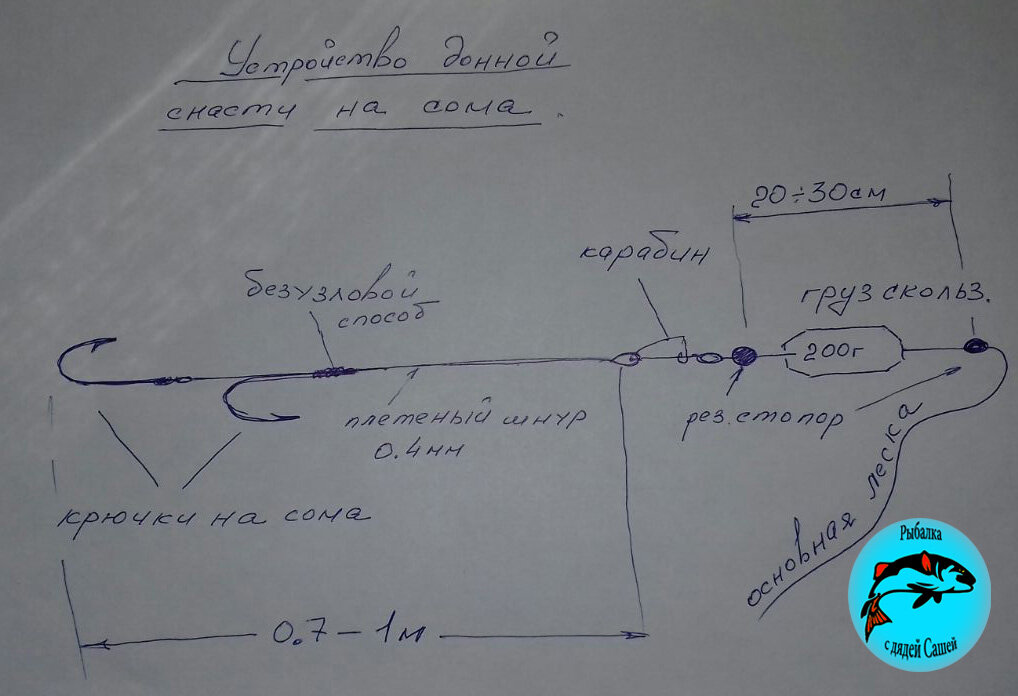 Устройство донной
снасти на сома.
20÷30см
карабин
безузловой
способ
груз скольз.
200г
плетеный шнур
0.4мм
рез. стопор
крючки на сома
основная леска
0.7 – 1м
Рыбалка
с дядей Сашей